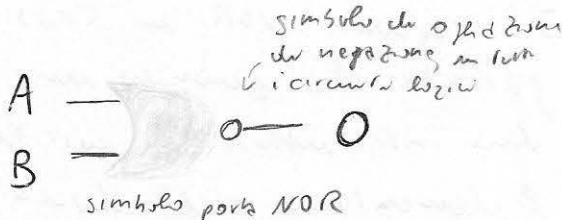 simbolo di operazione
di negazione in tutti
i circuiti logici
A
O
B
simbolo porta NOR